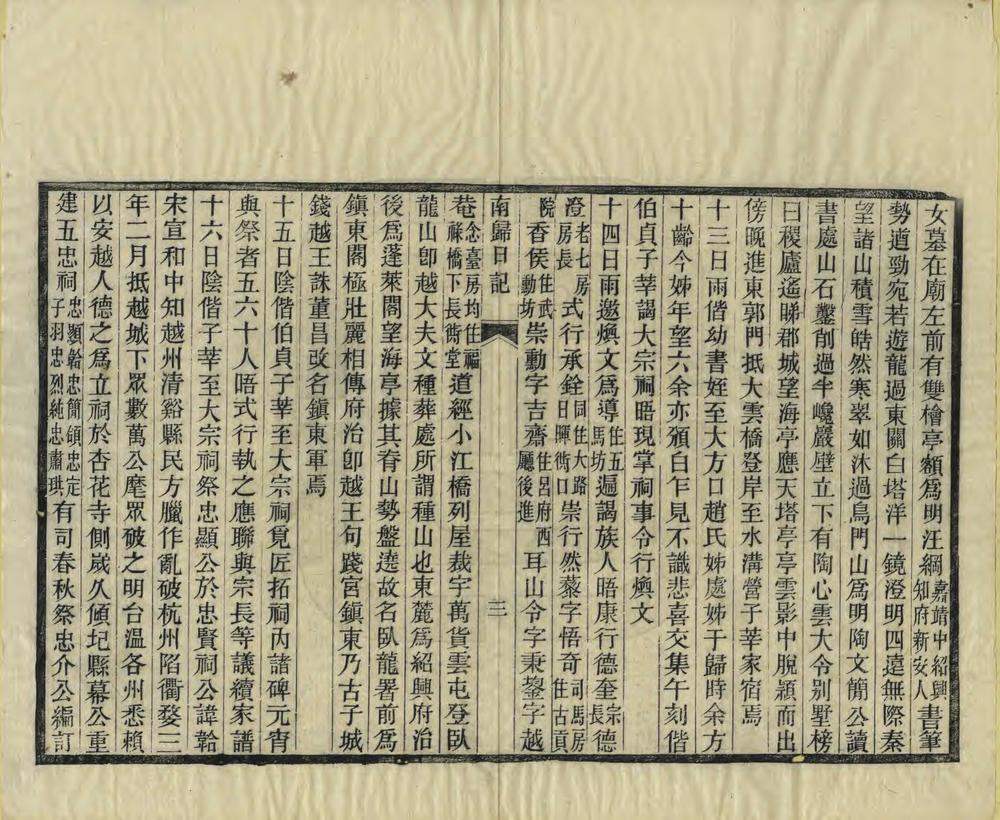 女墓在廟左前有雙檜亭額爲明汪綱嘉靖中紹興知府新安人書筆
勢遒勁宛若遊龍過東關白塔洋一鏡澄明四遠無際秦
望諸山積雪皓然寒翠如沐過鳥門山爲明陶文簡公讀
書處山石鑿削過半巉巖壁立下有陶心雲大令别墅榜
曰稷廬遙睇郡城望海亭應天塔亭亭雲影中脫穎而出
傍晚進東郭門抵大雲橋登岸至水溝營子莘家宿焉
十三日雨偕幼書姪至大方口趙氏姊處姊于歸時余方
十齡今姊年望六余亦頒白乍見不識悲喜交集午刻偕
伯貞子莘謁大宗祠晤現掌祠事令行煥文
十四日雨邀煥文爲導住五馬坊遍謁族人晤康行德奎宗長德
澄老七房房長式行承銓同住大路日暉衖口崇行然藜字悟奇司馬房住古貢
院香侯住武勳坊崇勳字吉齋住呂府西廳後進耳山令字秉鋆字越
南歸日記
三
菴念臺房均住福蘇橋下長衖堂道經小江橋列屋裁宇萬貨雲屯登臥
龍山卽越大夫文種葬處所謂種山也東麓爲紹興府治
後爲蓬萊閣望海亭據其脊山勢盤遶故名臥龍署前爲
鎭東閣極壯麗相傳府治卽越王句踐宮鎭東乃古子城
錢越王誅董昌改名鎭東軍焉
十五日陰偕伯貞子莘至大宗祠覓匠拓祠內諸碑元宵
與祭者五六十人晤式行執之應聯與宗長等議續家譜
十六日陰偕子莘至大宗祠祭忠顯公於忠賢祠公諱韐
宋宣和中知越州清谿縣民方臘作亂破杭州陷衢婺三
年二月抵越城下眾數萬公麾眾破之明台溫各州悉賴
以安越人德之爲立祠於杏花寺側歲久傾圮縣幕公重
建五忠祠忠顯韐忠簡頜忠定子羽忠烈純忠肅珙有司春秋祭忠介公編訂